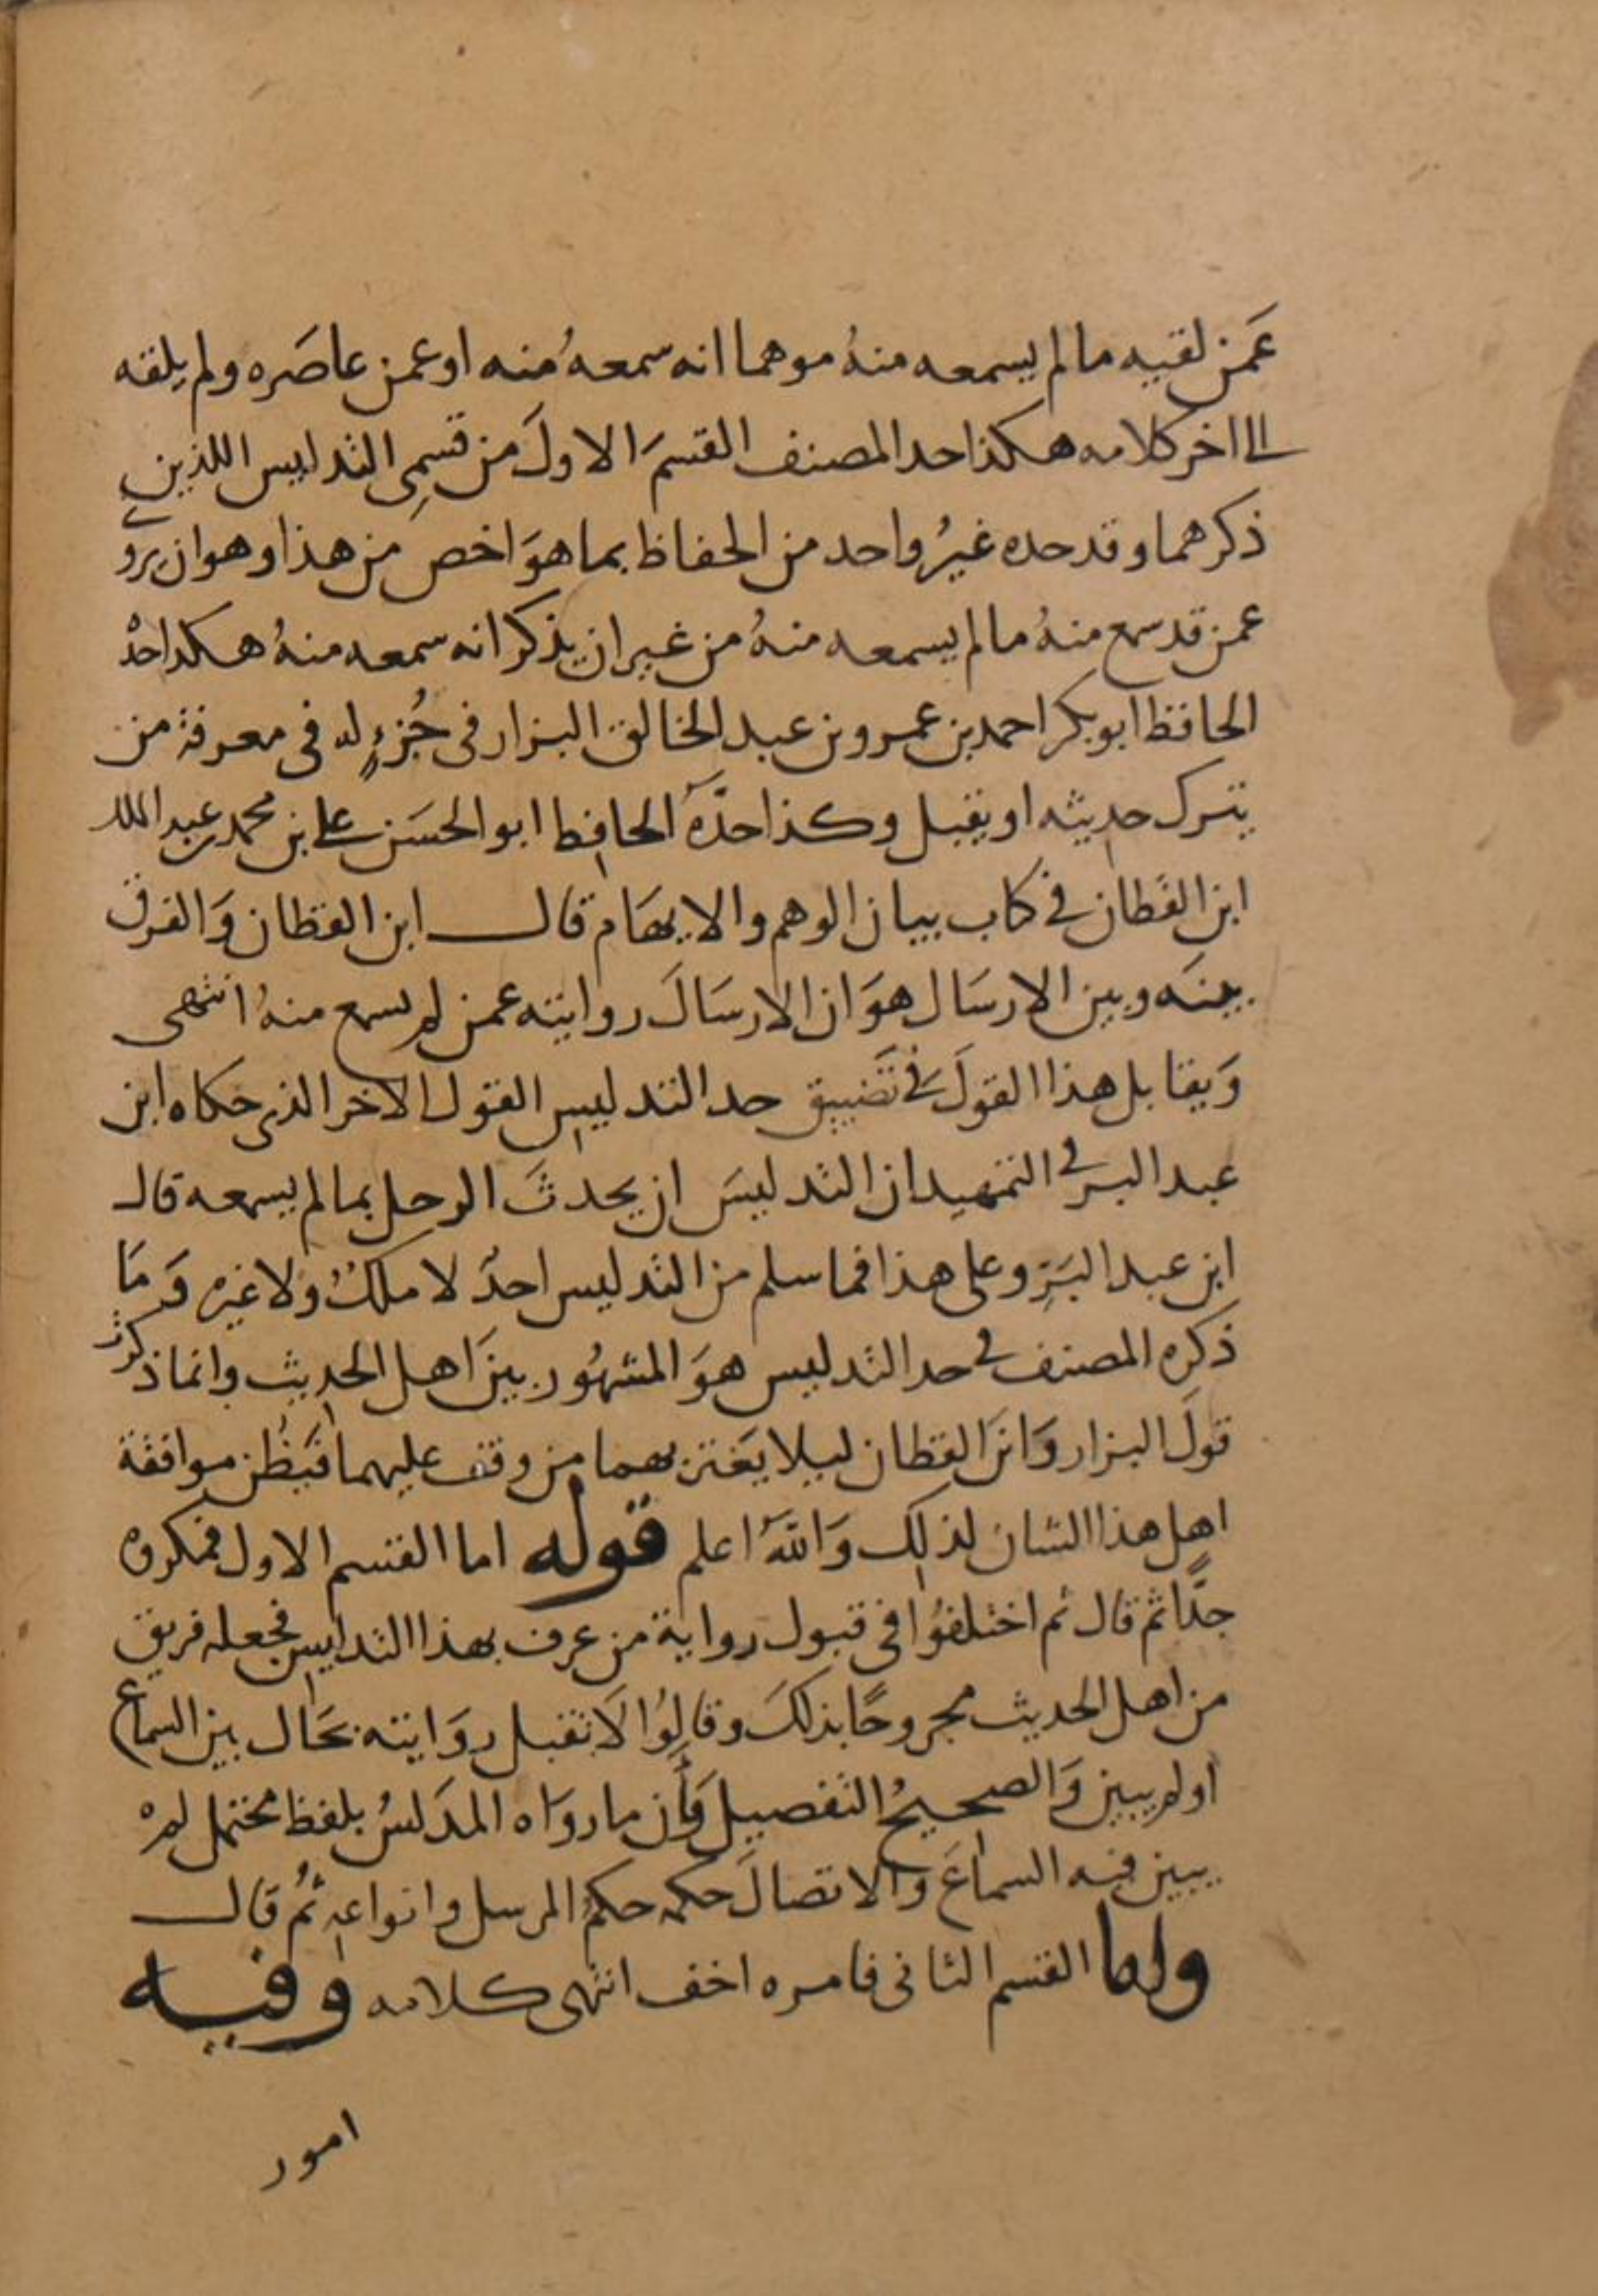 عَمن لقيه مالم يسمعه منهُ موهما انه سمعهُ منه او عمن عاصَره ولم يلقه
الى اخر كلامه هكذا حد المصنف القسمَ الاولَ من قسمِى التدليس اللذين
ذكرهما وقد حده غيرُ واحد من الحفاظ بما هوَ اخص من هذا وهو ان يروى
عمن قد سمع منهُ مالم يسمعه منهُ من غير ان يذكر انه سمعه منهُ هكذا حدهُ
الحافظ ابو بكر احمد بن عمرو بن عبد الخالق البزار فى جُزءٍ له فى معرفة من
يترك حديثه او يقبل وكذا حدَّهُ الحافظ ابو الحسَن على بن محمد بن عبد الملك
ابن القَطان فى كتاب بيان الوهم والايهَام قال ابن القطان وَالفرق
بينَه وبين الارسَال هوَ ان الارسَالَ روايته عمن لم يسمع منهُ انتهى
وَيقابل هذا القولَ فى تَضييق حد التدليس القول الاخر الذى حكاه ابن
عبد البر فى التمهيد ان التدليسَ ان يحدثَ الرجل بمالم يسمعه قال
ابن عبد البَرِ وعلى هذا فما سلم من التدليس احدٌ لا ملكٌ ولا غيره وَمَا
ذكره المصنف فى حد التدليس هوَ المشهُور بينَ اهل الحديث وانما ذكرتُ
قولَ البزار وَابنَ القطان ليلا يَغتر بهما من وقف عليهما فيَظُن موافقة
اهل هذا الشان لذلك وَاللهُ اعلم قوله اما القسم الاول فمكروه
جدًّا ثم قال ثم اختلفُوا فى قبول رواية من عرف بهذا التدليس فجعله فريق
من اهل الحديث مجروحًا بذلكَ وقالوُا لَا تقبل روَايته بحَال بين السماع
اولم يبين وَالصحيحُ التفصيل وَأن ما روَاه المدَلسُ بلفظ محتمل لم
يبين فيه السماعَ وَالاتصالَ حكمه حكمُ المرسل وانواعه ثُم قال
واما القسم الثانى فامره اخف انتهى كلامه وفيه
امور